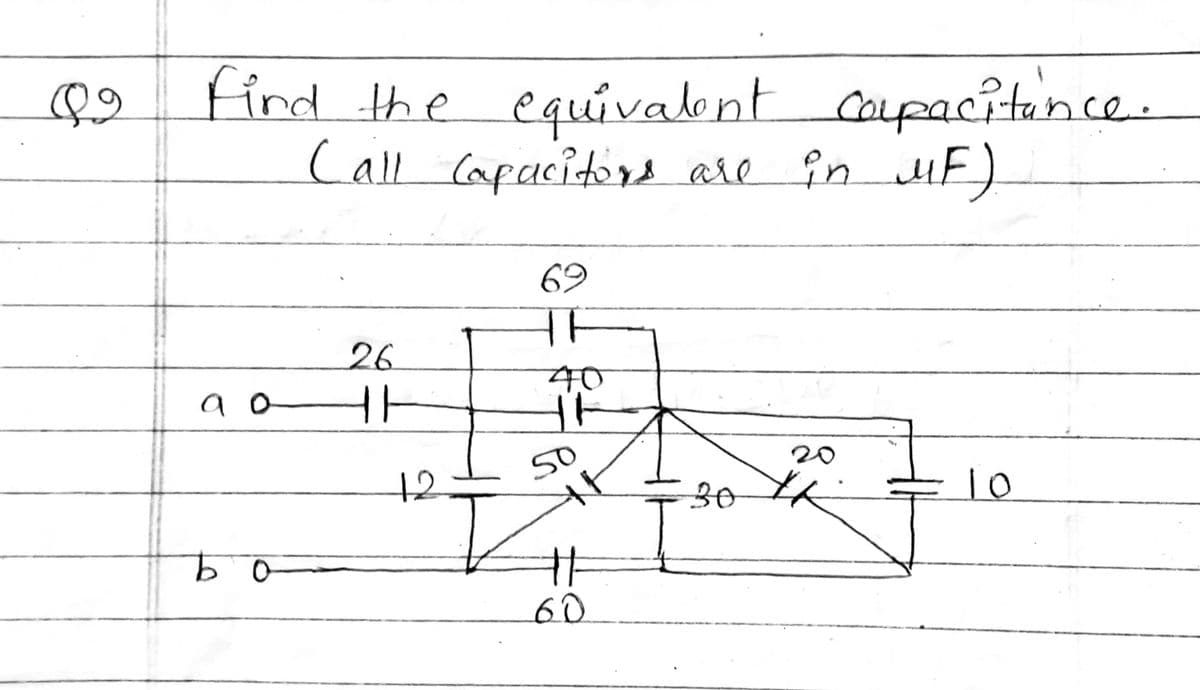 Q9 Find the equivalent capacitance.
(all Capacitors are in μF)
69
26
40
a
50
20
12
30
10
b
60